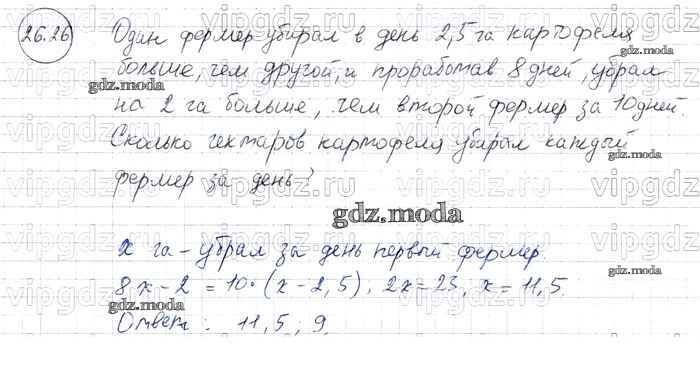 26.26 Один фермер убирал в день 2,5 га картофеля
больше, чем другой, и проработав 8 дней, убрал
gdz.moda
на 2 га больше, чем второй фермер за 10 дней.
Сколько гектаров картофеля убирал каждый
gdz.moda
фермер за день?
gdz.moda
x га - убрал за день первый фермер.
8x - 2 = 10·(x - 2,5), 2x = 23, x = 11,5.
gdz.moda
Ответ: 11,5; 9.
gdz.moda
vipgdz.ru